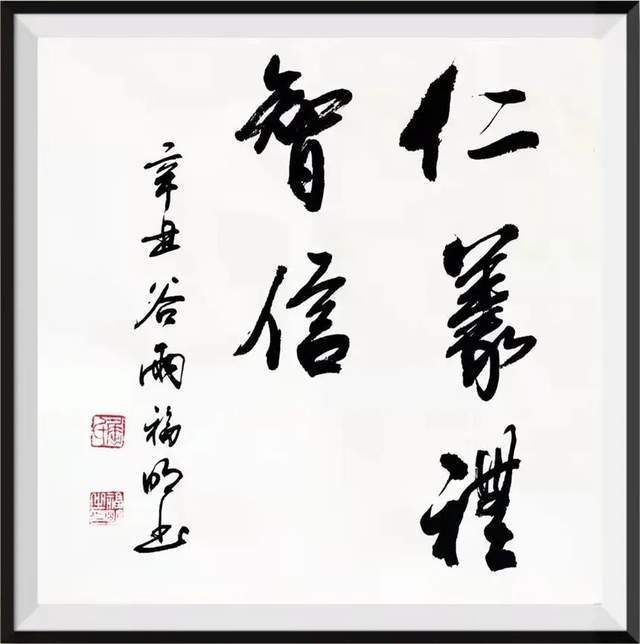 仁義禮
智信
辛丑谷雨福明书